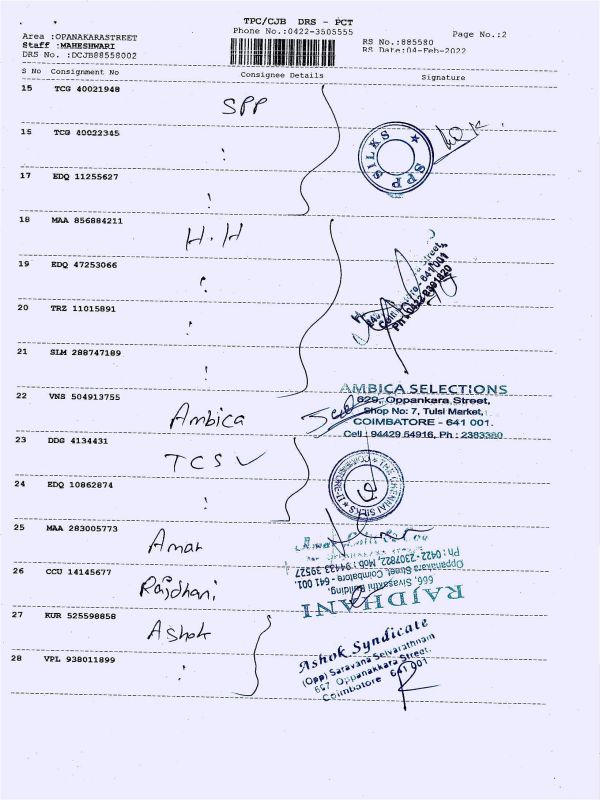 TPC/CJB DRS - PCT
Area :OPANAKARASTREET Phone No.:0422-3505555 Page No.:2
Staff :MAHESHWARI RS No.:885580
DRS No. :DCJB88558002 RS Date:04-Feb-2022
S No Consignment No Consignee Details Signature
15 TCG 40021948
SPP
15 TCG 40022345
SPP SILKS
17 EDQ 11255627
18 MAA 856884211
H.H
19 EDQ 47253066
Street,
641 001
20 TRZ 11015891
21 SLM 288747189
22 VNS 504913755
Ambica
AMBICA SELECTIONS
629, Oppankara Street,
Shop No: 7, Tulsi Market,
COIMBATORE - 641 001.
Cell : 94429 54916, Ph : 2383380
23 DDG 4134431
TCSV
24 EDQ 10862874
THE CHENNAI SILKS COIMBATORE
25 MAA 283005773
Amar
26 CCU 14145677
Rajdhani
RAJDHANI
666, Sivasakthi Building,
Oppanakara Street, Coimbatore - 641 001
Ph : 0422-2307822, Mob : 94433 39527
27 KUR 525598858
Ashok
28 VPL 938011899
Ashok Syndicate
(Opp) Saravana Selvarathnam
667 Oppanakkara Street,
Coimbatore 641 001